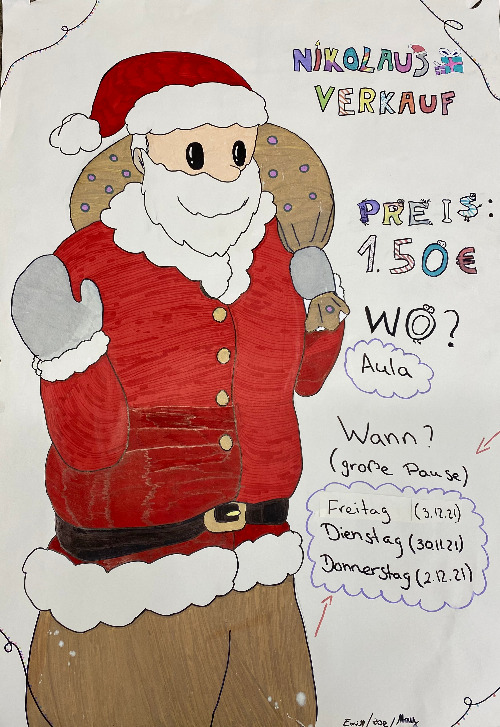 NIKOLAUS
VERKAUF
PREIS:
1.50€
WO?
Aula
Wann?
(große Pause)
Freitag (3.12.21)
Dienstag (30.11.21)
Donnerstag (2.12.21)